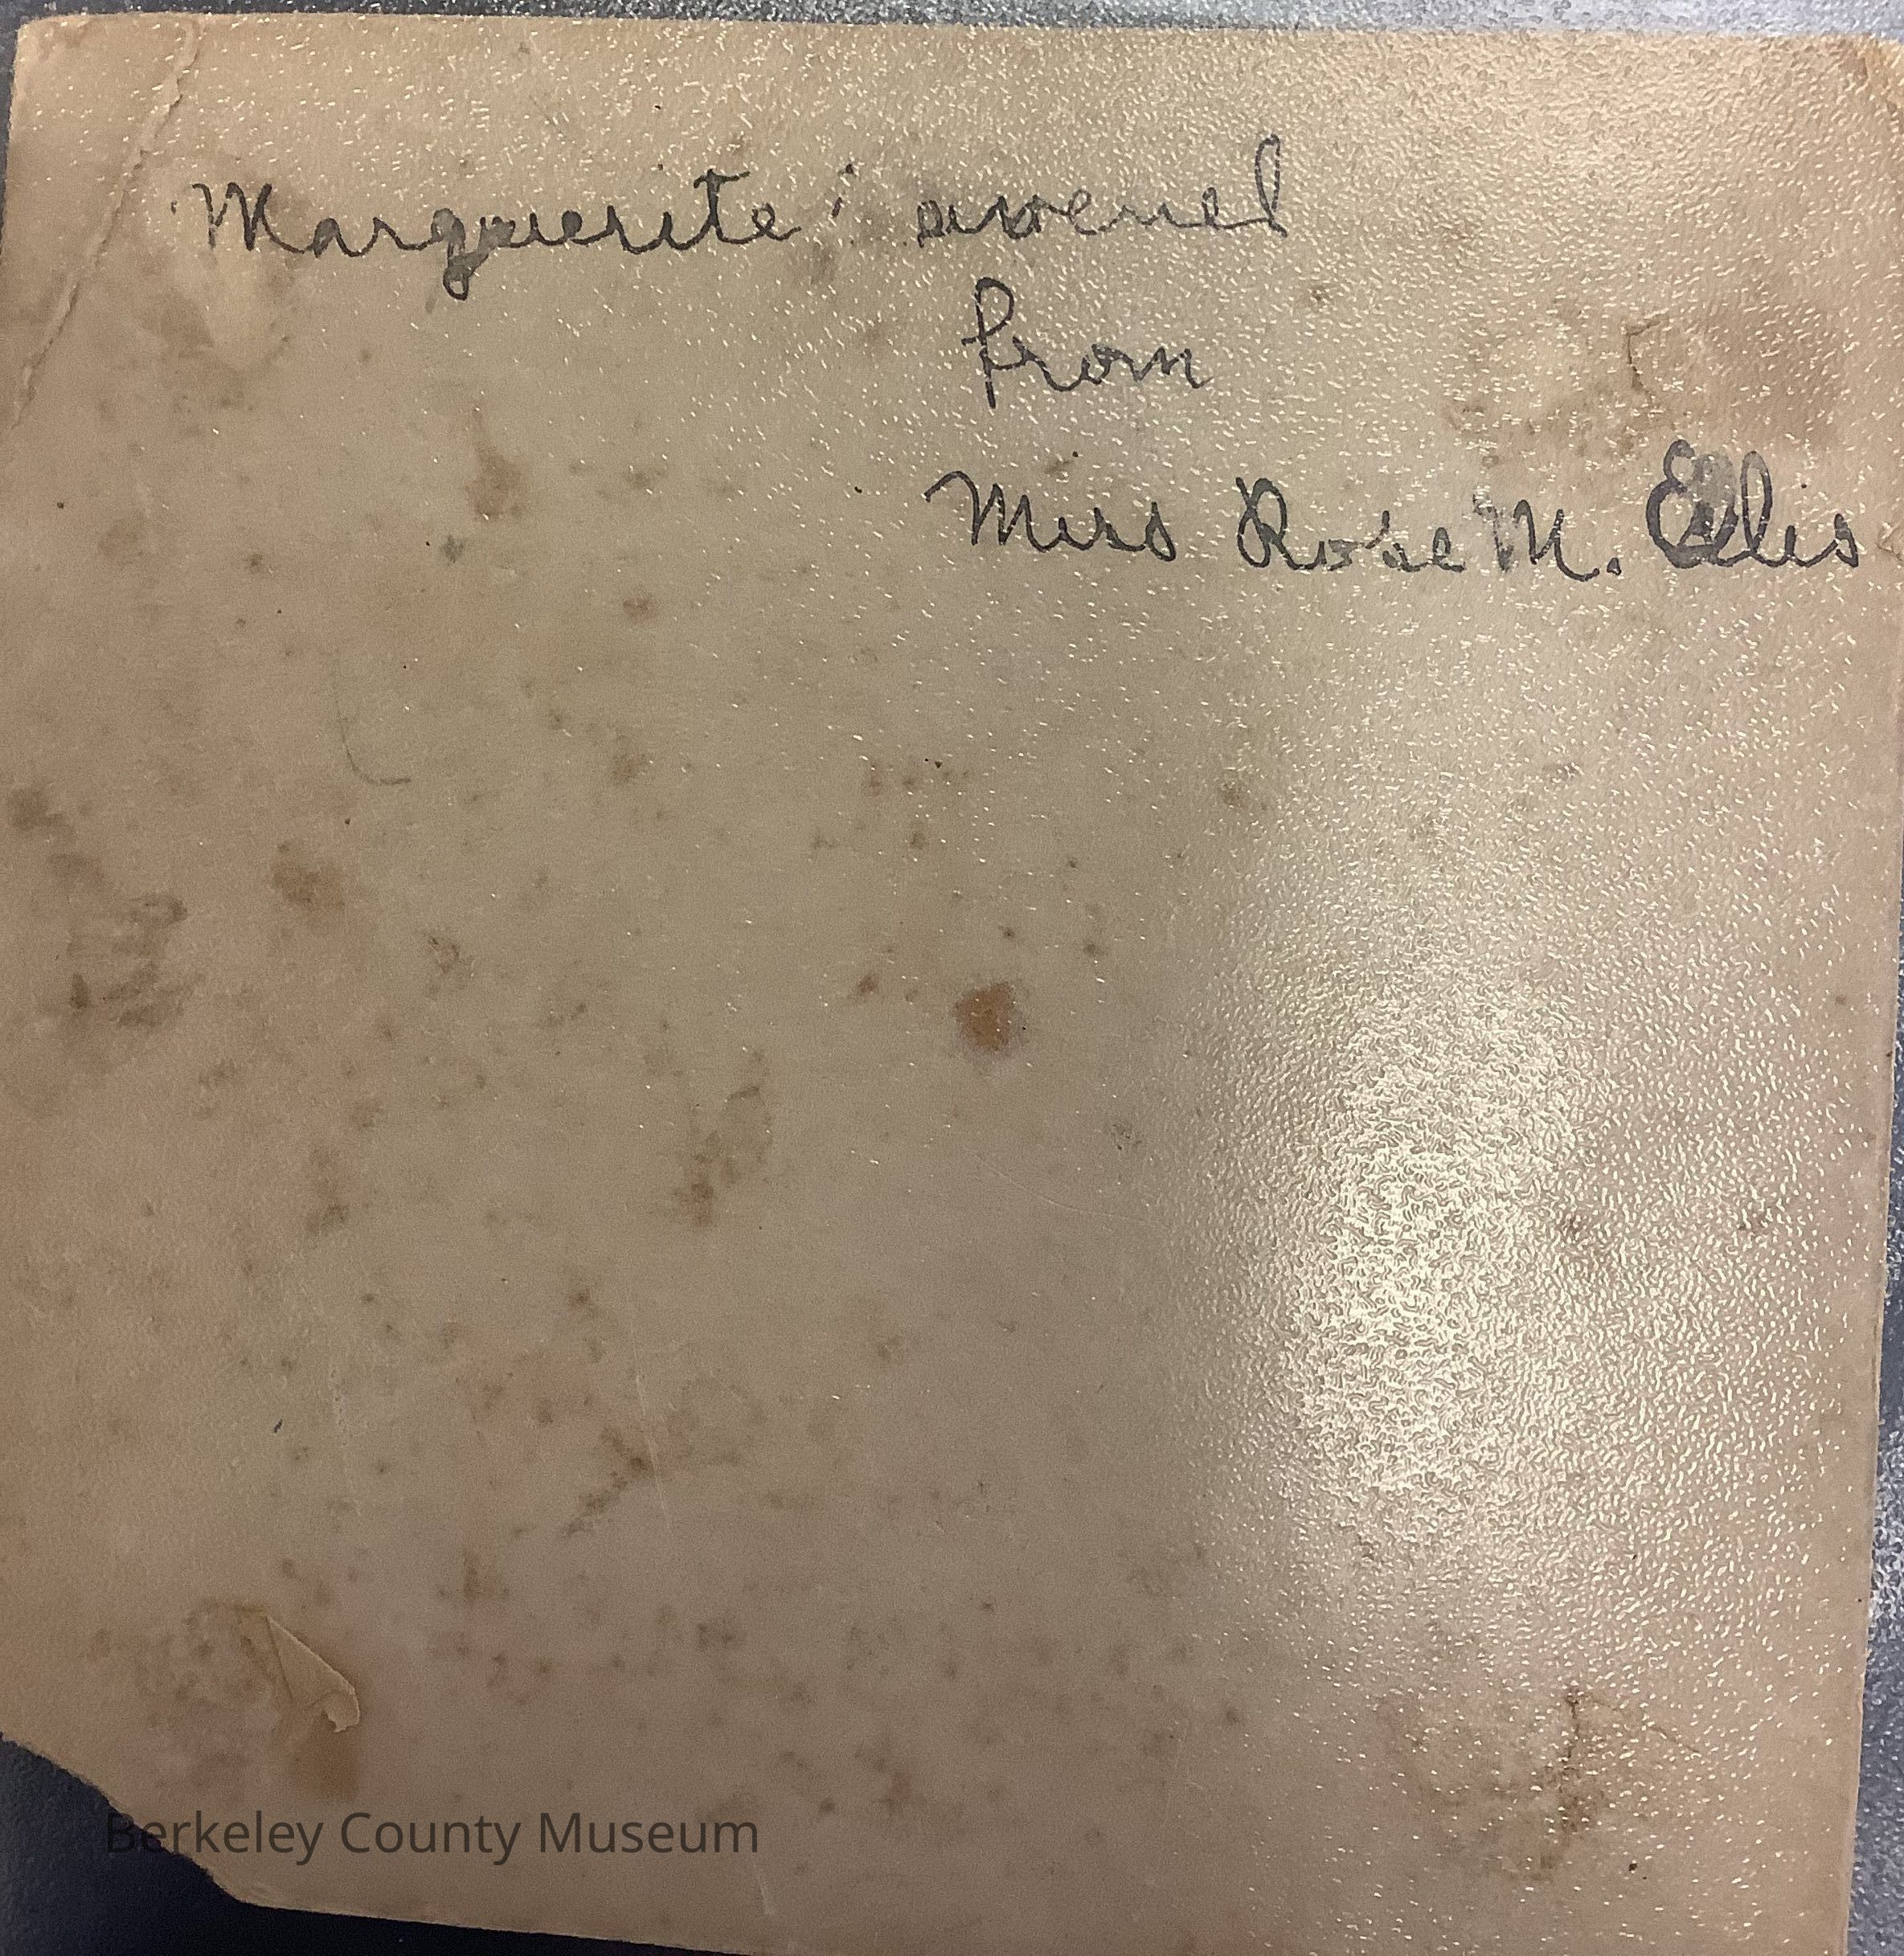 Marguerite
from
Miss Rose M. Ellis
Berkeley County Museum